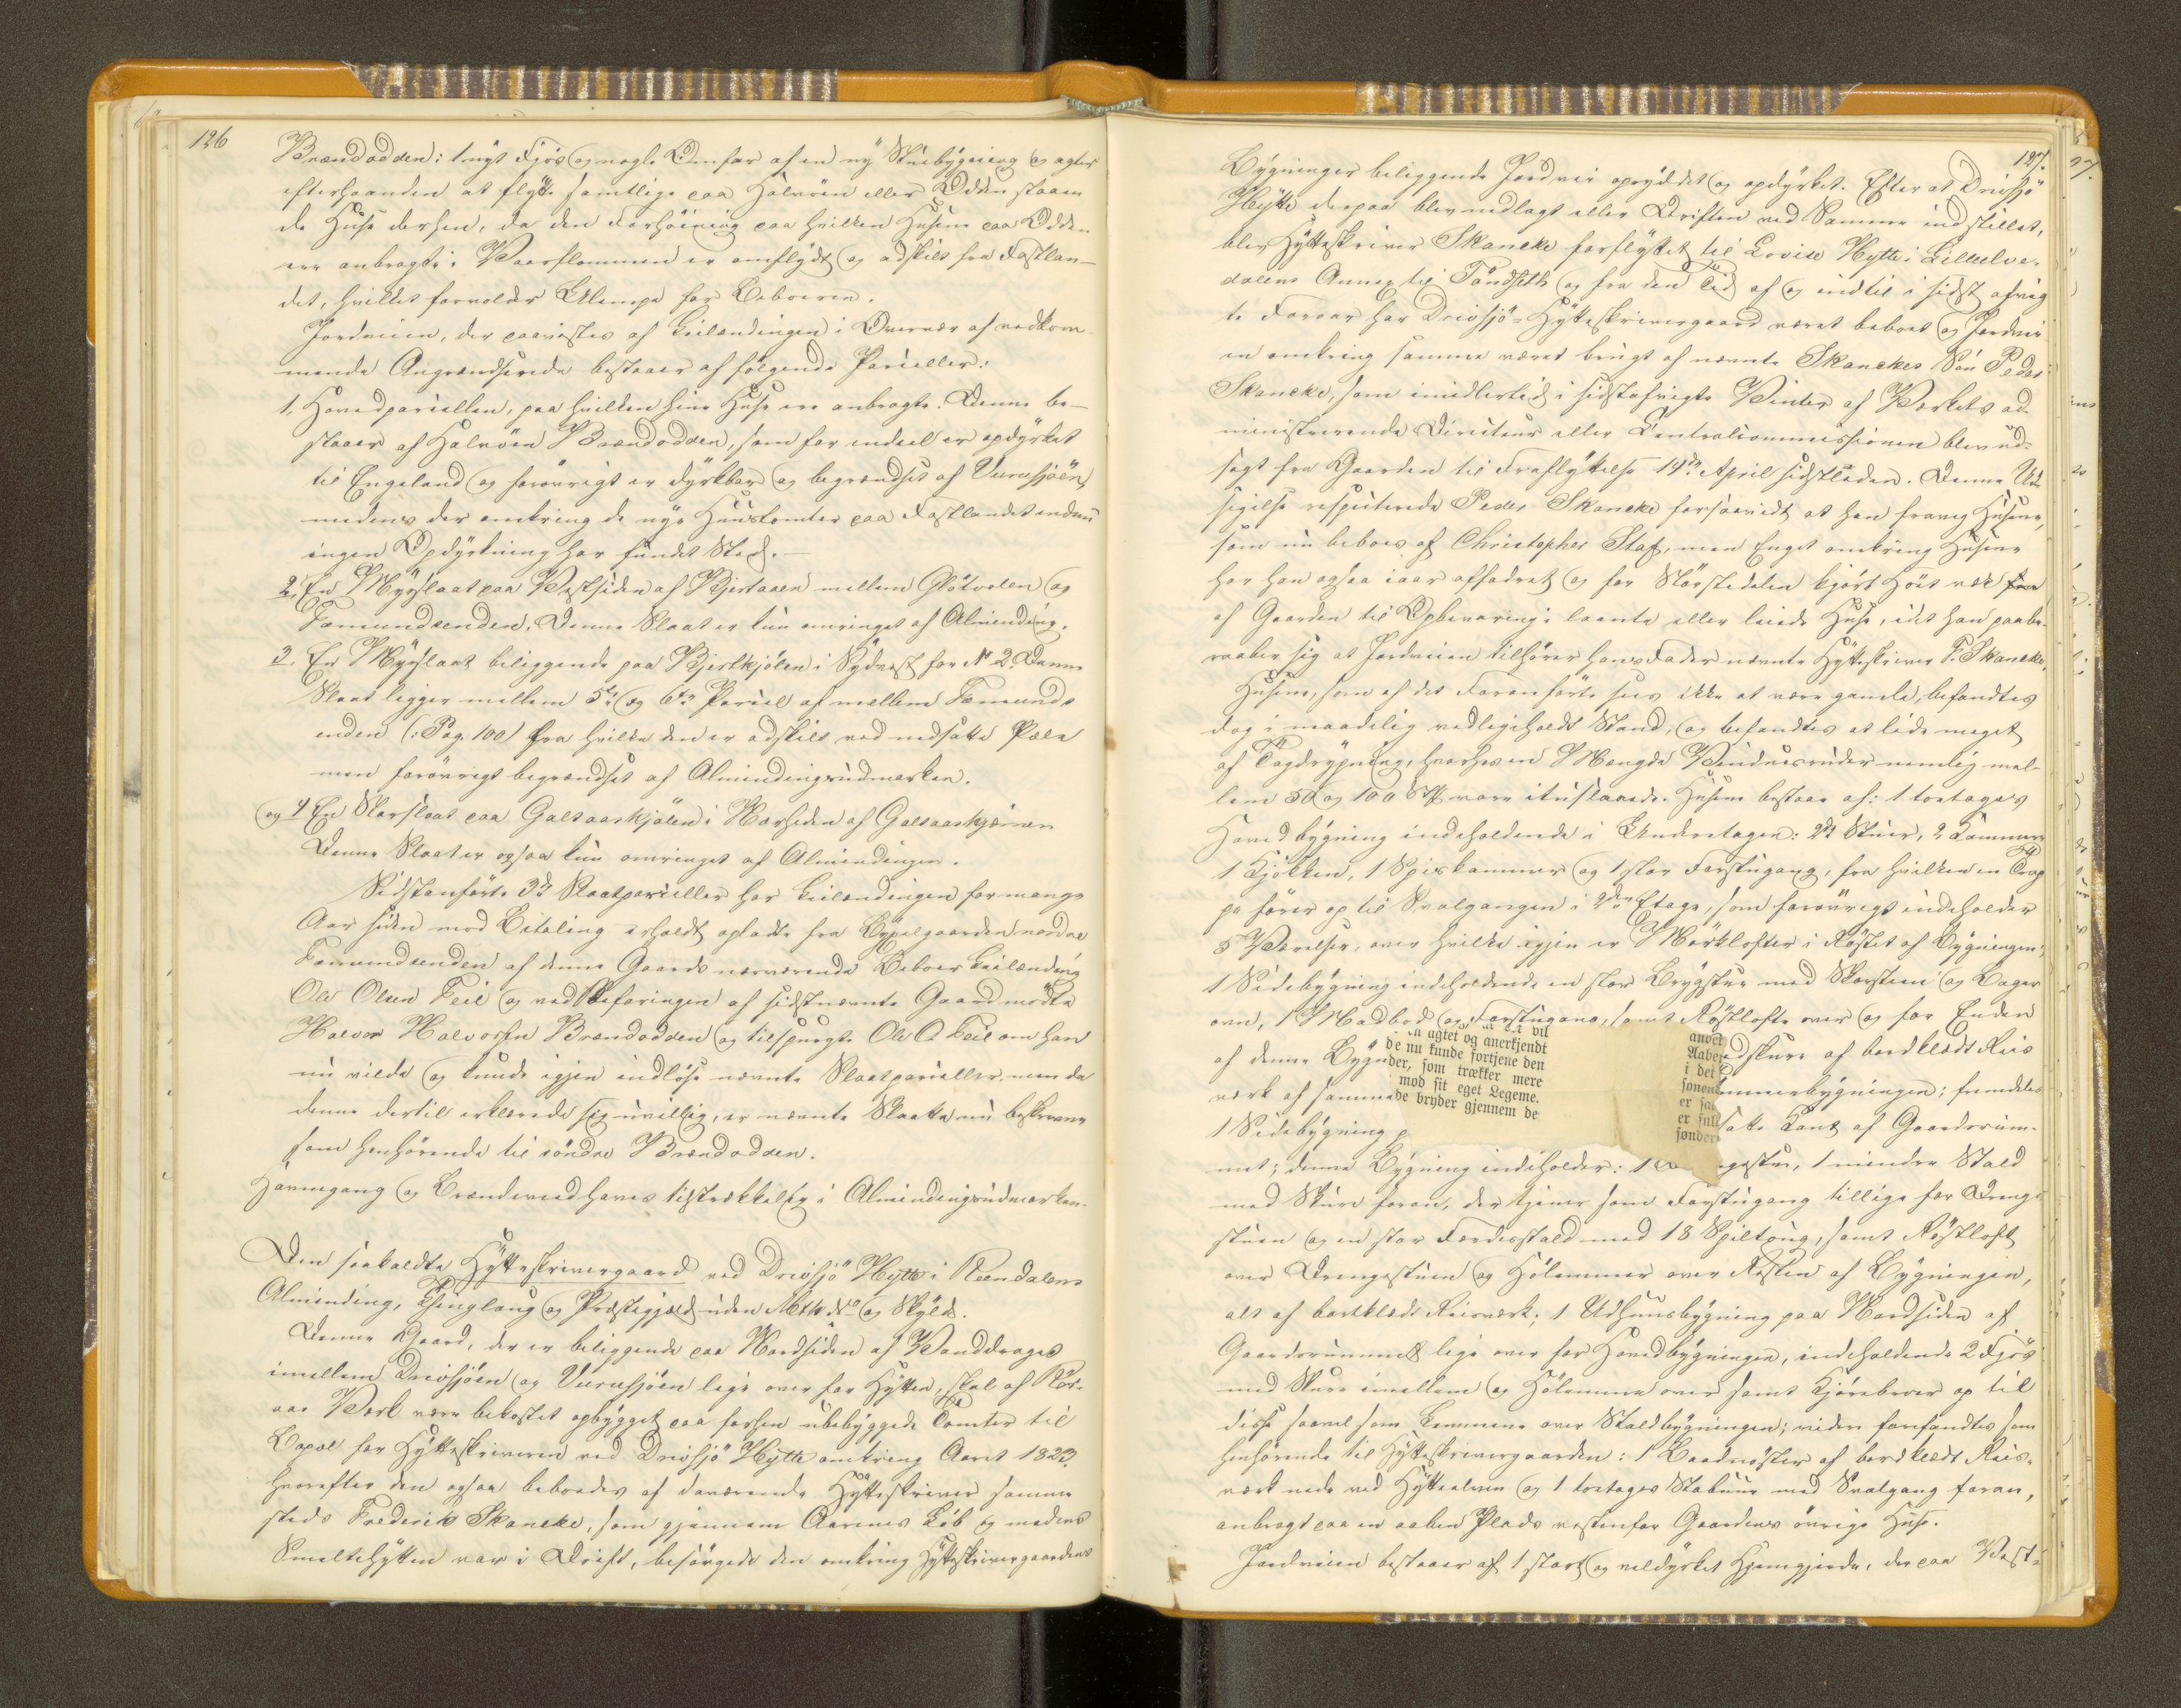 126
Brændodden: 1 nyt Fjös og nogle Omfar af en ny Stuebygning og agter
efterhaanden at flytte samtlige paa Halvöen eller Odden staaen
de Huse derhen, da den Forhöining paa hvilken Husene paa Odden
ere anbragte i Vaarflommen er omflydt og adskilt fra Fastlan-
det, hvilket forvolder Ulempe for Beboeren.
Jordveien, der paavistes af Leilændingen i Overvær af vedkom
mende Angrændserede bestaaer af følgende Parceller:
1. Hovedparcellen, paa hvilken hine Huse ere anbragte. Denne be-
staaer af Halvöen Brændodden, som for endeel er opdyrket
til Engeland og forövrigt er dyrkbar og begrændset af Vurrusjöen,
medens der omkring de nye Huustomter paa Fastlandet endnu
ingen Opdyrkning har fundet Sted.
2. En Myrslaat paa Vestsiden af Bjertaaen mellem Glötvolen og
Fæmundsenden. Denne Slaat er kun omringet af Alminding.
3. En Myrslaat beliggende paa Bjertkjölen i Sydvest for N 2. Denne
Slaat ligger mellem 5te og 6te Parcel af mellem Fæmunds
enden (: Pag. 100) fra hvilke den er adskilt ved nedsatte Pæle
men forövrigt begrændset af Almindingsudmarken.
og 4 En Storslaat paa Galtaaskjölen i Norsiden af Galtaaskjærnen
Denne Slaat er ogsaa kun omringet af Almindingen.
Sidstanförte 3de Slaatparceller har Leilændingen for mange
Aar siden mod Betaling erholdt opladte fra Bygselgaarden nordre
Fæmundsenden af denne Gaards nærværende Beboer Leilænding
Ole Olsen Feil og ved Befaringen af sidstnævnte Gaard mödte
Halvor Halvorsen Brændodden og tilspurgte Ole O. Feil om han
nu vilde og kunde igjen indlöse nævnte Slaatparceller, men da
denne dertil erklærede sig uvillig, er nævnte Slaatte nu beskrevne
som henhörende til söndre Brændodden.
Havnegang og Brændeved haves tilstrækkelig i Almindingsudmarken.
Den saakaldte Hytteskrivergaard ved Drevsjö Hytte i Rendalens
Alminding, Thinglaug og Præstegjæld uden Mtk. No og Skyld.
Denne Gaard, der er beliggende paa Nordsiden af Vanddraget
imellem Drevsjöen og Vurrusjöen lige over for Hytten, skal af Rör-
aas Værk være bekostet opbygget paa forhen ubebyggede Tomter til
Bopæl for Hytteskriveren ved Drevsjö Hytte omkring Aaret 1823.
hvorefter den ogsaa beboedes af daværende Hytteskriver samme
steds Frederik Skancke, som gjennem Aarenes Löb og medens
Smeltehytten var i Drift, besörgede den omkring Hytteskrivergaardens
127.
Bygninger beliggende Jordvei opryddet og opdyrket. Efter at Drevsjö
Hytte derpaa blev nedlagt eller Driften ved Samme indstillet,
blev Hytteskriver Skancke forflyttet til Lovise Hytte i Lilleelve-
dalens Annex til Tönsæth og fra den Tid af og indtil i sidst afvig
te Foraar har Drevsjö-Hytteskrivergaard været beboet og Jordvei
en omkring samme været brugt af nævnte Skanckes Sön Peder
Skancke, som imidlertid i sidstafvigte Vinter af Værkets ad
ministrerende Directeur eller Centralcommissionen blev ud-
sagt fra Gaarden til Fraflyttelse 14de April sidstleden. Denne Ud
sigelse respecterede Peder Skancke forsaavidt at han fraveg Husene,
som nu beboes af Christopher Staf, men Enget omkring Husene
har han ogsaa iaar afhadret og for Störstedelen kjört Höet væk
af Gaarden til Opbevaring i laante eller leiede Huse, idet han paabe-
raaber sig at Jordveien tilhörer hans Fader nævnte Hytteskriver F. Skancke.
Husene, som af det Foranförte sees ikke at være gamle, befandtes
dog i maadelig vedligeholdt Stand, og befandtes at lide meget
af Tagdrypning, hvorhos en Mængde Vinduesruder nemlig mel-
lem 50 og 100 Stk vare ituslaaede. Husene bestaae af: 1 toetages
Hovedbygning indeholdende i Underetagen: 2de Stuer, 2 Kammere
1 Kjökken, 1 Spiskammer og 1 stor Forstugang, fra hvilken en Trap
pe förer op til Svalgangen i 2den Etage, som forövrigt indeholder
5 Værelser, over hvilke igjen er Mörklofter i Röstet af Bygningen;
1 Sidebygning indeholdende en stor Brygstue med Skorsteen og Bager
ovn, 1 Madbod og Forstugang, samt Röstlofte over og for Enden
af denne Bygn
edskure af bordklædt Reis
værk af samme
ömmerbygningen; fremdeles
1 Sidebygning p
satte Kant af Gaardsrum-
met; denne Bygning indeholder: 1 gestue, 1 mindre Stald
med Skure foran, der tjener som Forstugang tillige for Drenge
stuen og en stor Færdesstald med 18 Spiltoug, samt Röstloft
over Drengestuen og Hölemme over Resten af Bygningen,
alt af bordklædt Reisværk; 1 Udhuusbygning paa Nordsiden af
Gaardsrummet lige over for Hovedbygningen, indeholdende 2 Fjös
med Skure imellem og Hölemme over samt Kjörebroer op til
disse saavel som Lemmene over Staldbygningen; videre forefandtes som
henhörende til Hytteskrivergaarden: 1 Baadnöster af bordklædt Reis-
værk nede ved Hytteelven og 1 toetages Stabuur med Svalgang foran,
anbragt paa en aaben Plads vestenfor Gaardens övrige Huse.
Jordveien bestaaer af 1 stort og veldyrket Hjemgjerde, der paa Vest-
agtet og anerkjendt
de nu kunde fortjene den
der, som trækker mere
mod sit eget Legeme.
de bryder gjennem de
Aabe
i det
sønen
er
er
sønder